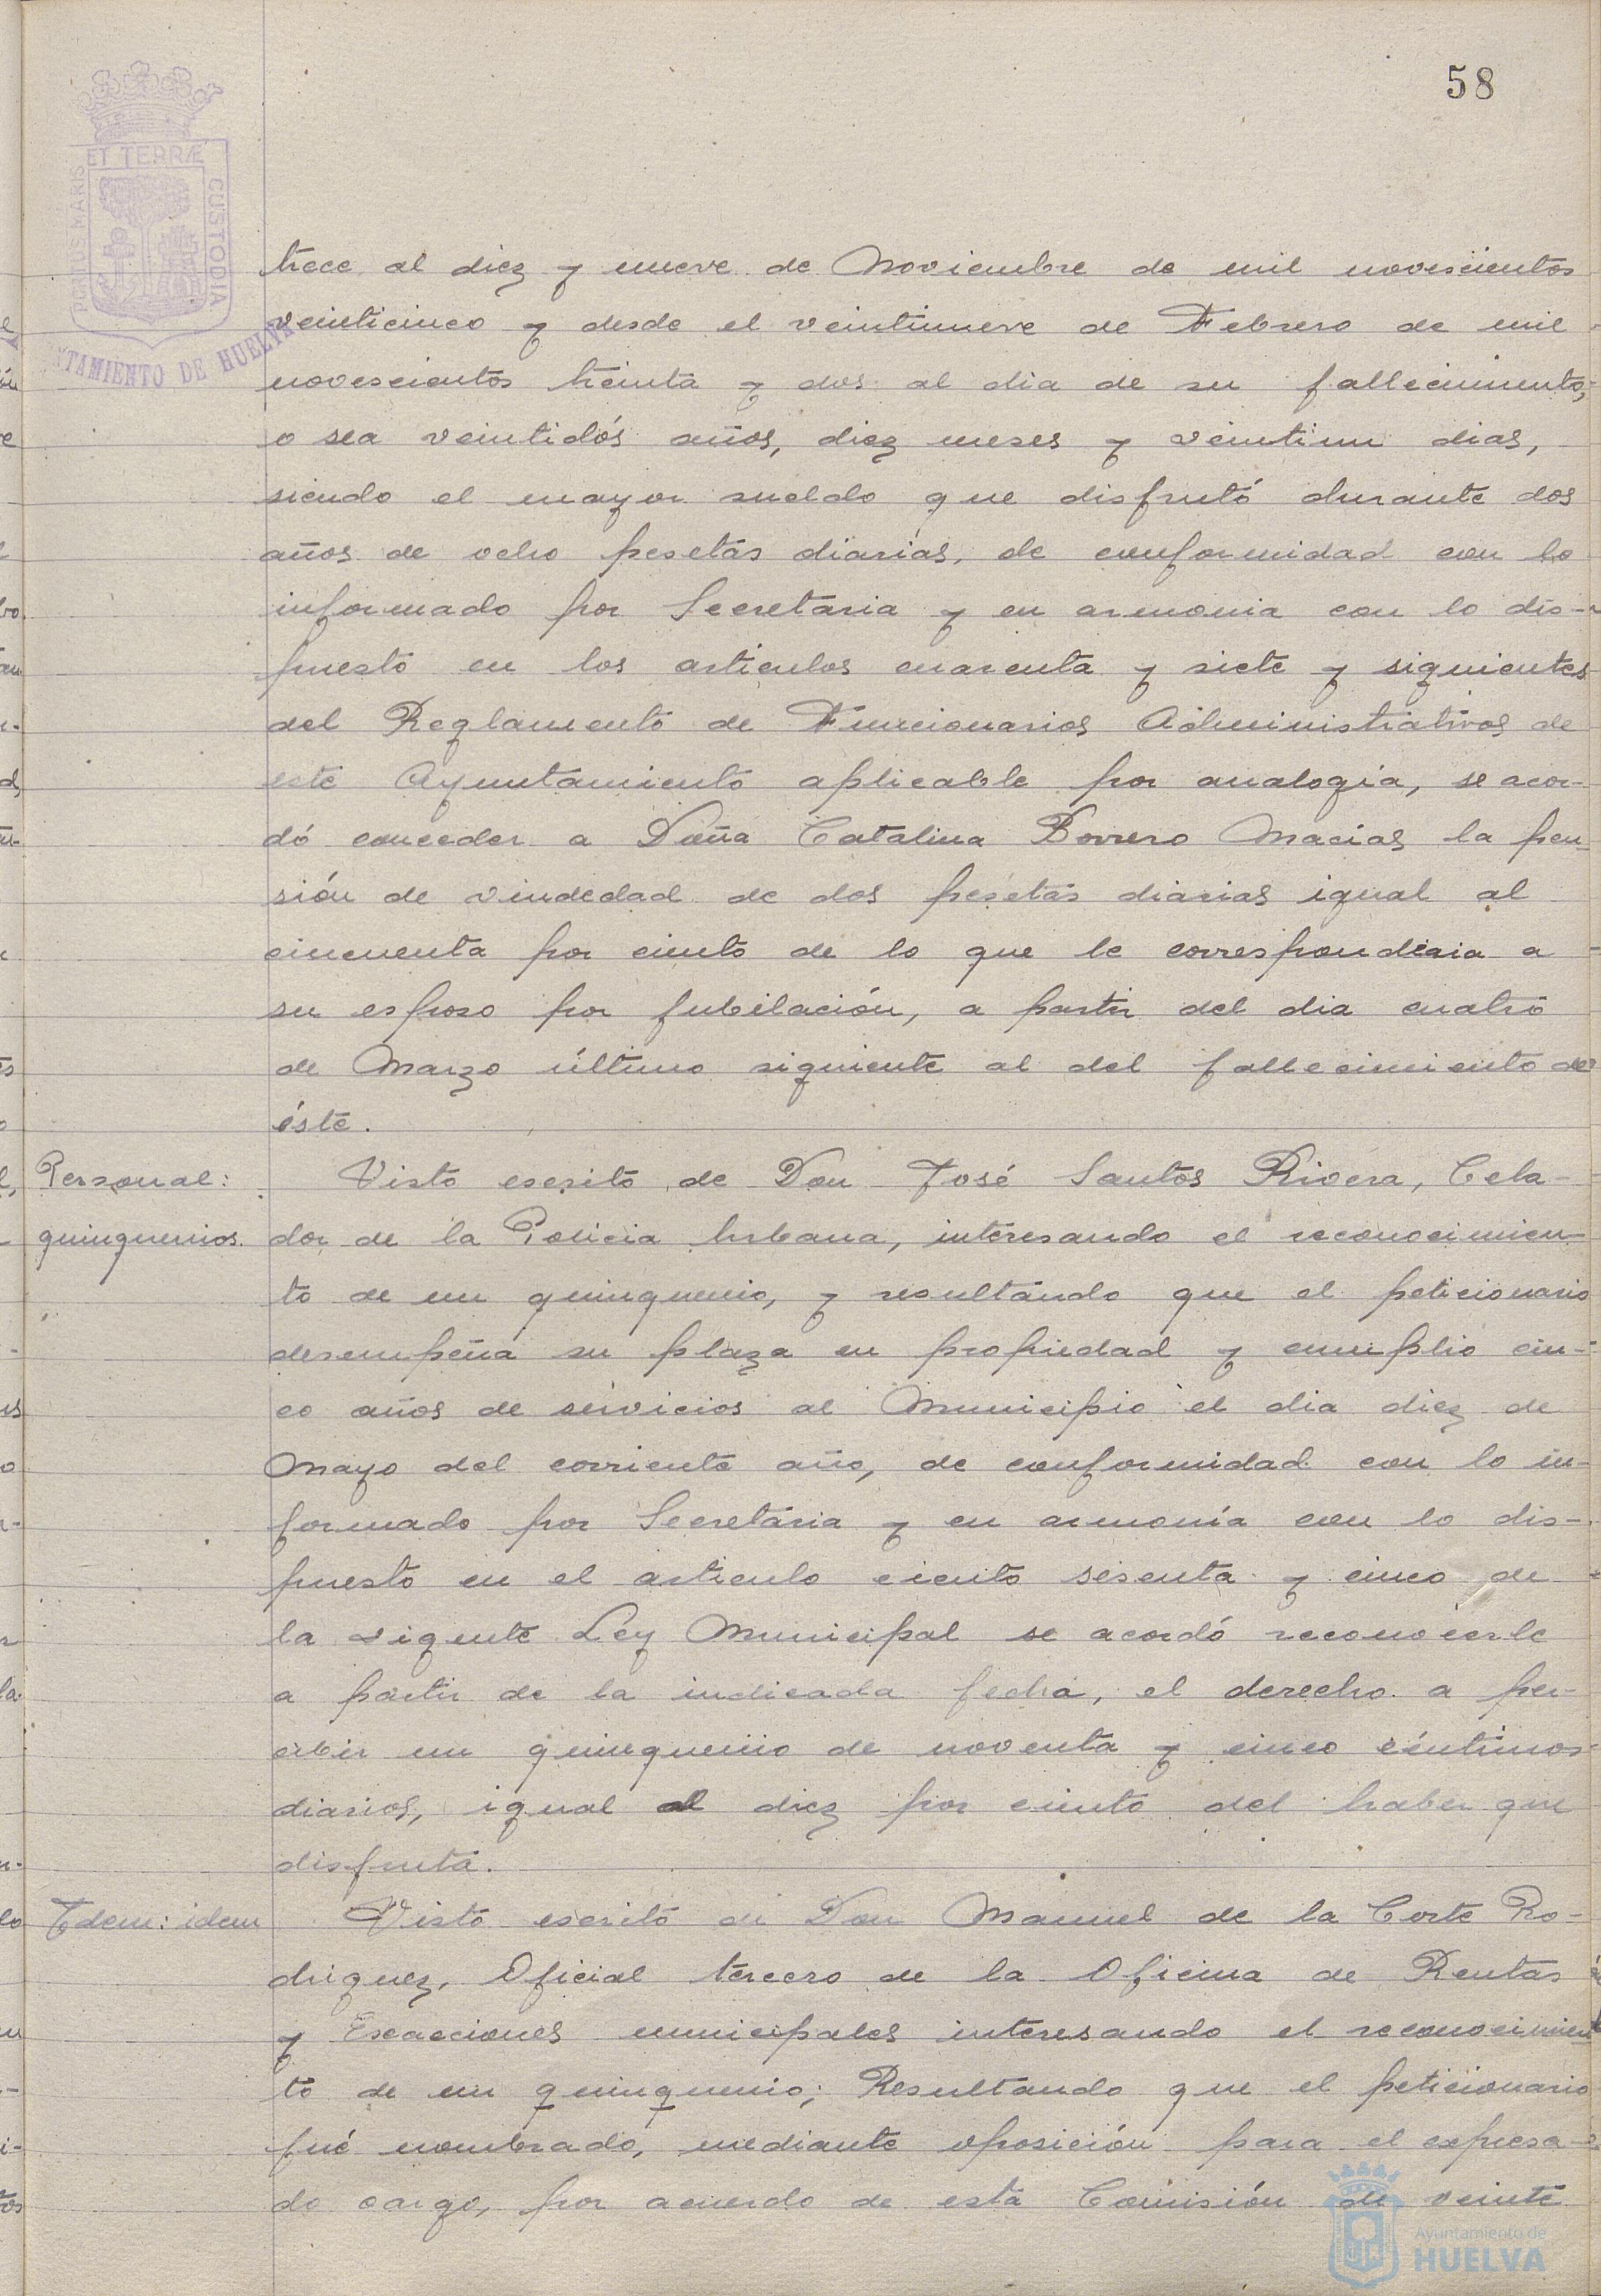 58
PORTUS MARIS ET TERRÆ CUSTODIA
AYUNTAMIENTO DE HUELVA
trece al diez y nueve de Noviembre de mil novescientos
veinticinco y desde el veintinueve de Febrero de mil
novescientos treinta y dos al dia de su fallecimiento,
o sea veintidós años, diez meses y veintiun dias,
siendo el mayor sueldo que disfrutó durante dos
años de ocho pesetas diarias, de conformidad con lo
informado por Secretaria y en armonia con lo dis-
puesto en los articulos cuarenta y siete y siguientes
del Reglamento de Funcionarios Administrativos de
este Ayuntamiento aplicable por analogia, se acor-
dó conceder a Doña Catalina Borrero Macias la pen-
sión de viudedad de dos pesetas diarias igual al
cincuenta por ciento de lo que le correspondiaia a
su esposo por jubilación, a partir del dia cuatro
de Marzo último siguiente al del fallecimiento de
éste.
Personal: Visto escrito de Don José Santos Rivera, Cela-
quinquenios. dor de la Policia Urbana, interesando el reconocimien-
to de un quinquenio, y resultando que el peticionario
desempeña su plaza en propiedad y cumplio cin-
co años de servicios al Municipio el dia diez de
Mayo del corriente año, de conformidad con lo in-
formado por Secretaria y en armonía con lo dis-
puesto en el articulo ciento sesenta y cinco de
la vigente Ley Municipal se acordó reconocerle
a partir de la indicada fecha, el derecho a per-
cibir un quinquenio de noventa y cinco céntimos
diarios, igual al diez por ciento del haber que
disfruta.
Idem: idem Visto escrito de Don Manuel de la Corte Ro-
driguez, Oficial tercero de la Oficina de Rentas
y Exacciones municipales interesando el reconocimien
to de un quinquenio; Resultando que el peticionario
fué nombrado, mediante oposición para el expresa-
do cargo, por acuerdo de esta Comisión de veinte
Ayuntamiento de
HUELVA